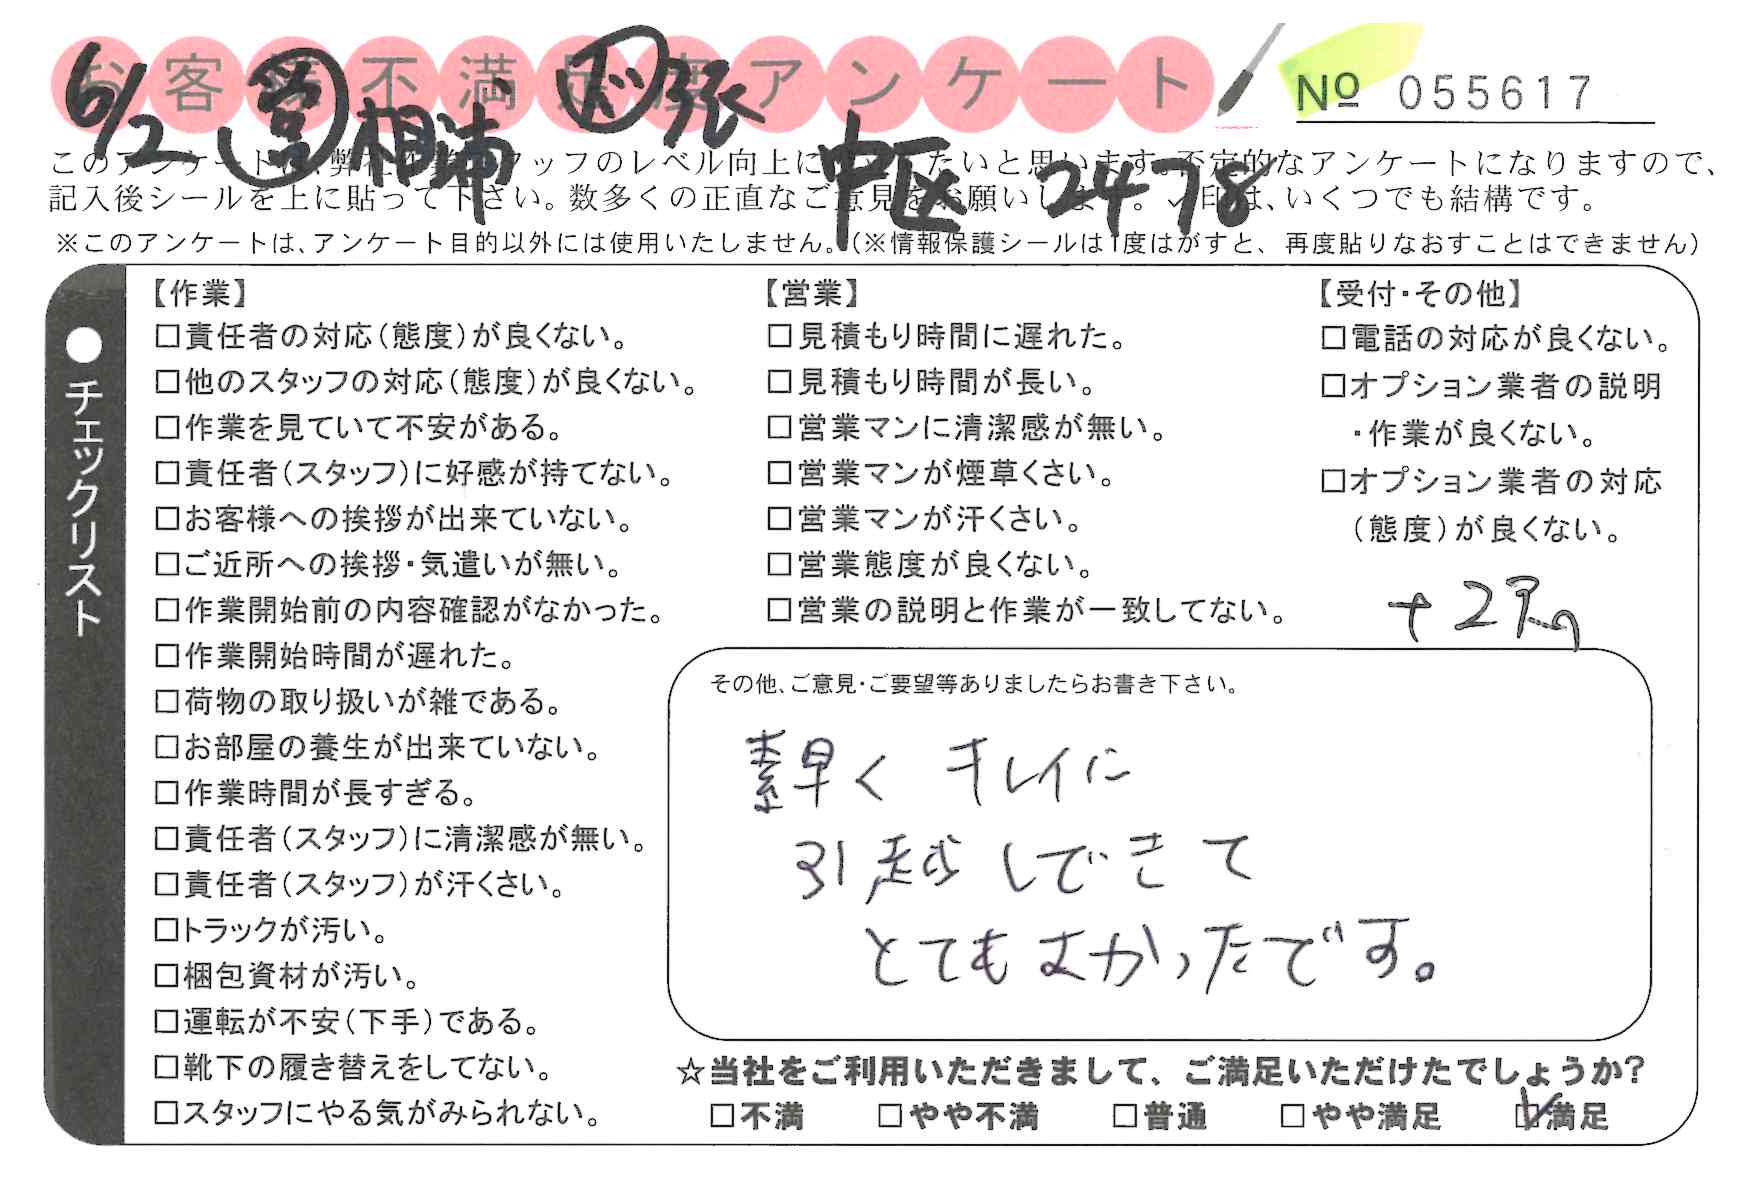 お客様不満足度アンケート
№ 055617
6/2 営 相浦 ド 張
中区 24-78
このアンケートは、弊社作業スタッフのレベル向上に役立てたいと思います。不定的なアンケートになりますので、
記入後シールを上に貼って下さい。数多くの正直なご意見をお願いします。✓印は、いくつでも結構です。
※このアンケートは、アンケート目的以外には使用いたしません。(※情報保護シールは1度はがすと、再度貼りなおすことはできません)
●チェックリスト
【作業】
□責任者の対応(態度)が良くない。
□他のスタッフの対応(態度)が良くない。
□作業を見ていて不安がある。
□責任者(スタッフ)に好感が持てない。
□お客様への挨拶が出来ていない。
□ご近所への挨拶・気遣いが無い。
□作業開始前の内容確認がなかった。
□作業開始時間が遅れた。
□荷物の取り扱いが雑である。
□お部屋の養生が出来ていない。
□作業時間が長すぎる。
□責任者(スタッフ)に清潔感が無い。
□責任者(スタッフ)が汗くさい。
□トラックが汚い。
□梱包資材が汚い。
□運転が不安(下手)である。
□靴下の履き替えをしてない。
□スタッフにやる気がみられない。
【営業】
□見積もり時間に遅れた。
□見積もり時間が長い。
□営業マンに清潔感が無い。
□営業マンが煙草くさい。
□営業マンが汗くさい。
□営業態度が良くない。
□営業の説明と作業が一致してない。
【受付・その他】
□電話の対応が良くない。
□オプション業者の説明
・作業が良くない。
□オプション業者の対応
(態度)が良くない。
その他、ご意見・ご要望等ありましたらお書き下さい。
素早く キレイに
引越しできて
とてもよかったです。
☆当社をご利用いただきまして、ご満足いただけたでしょうか?
□不満 □やや不満 □普通 □やや満足 ☑満足